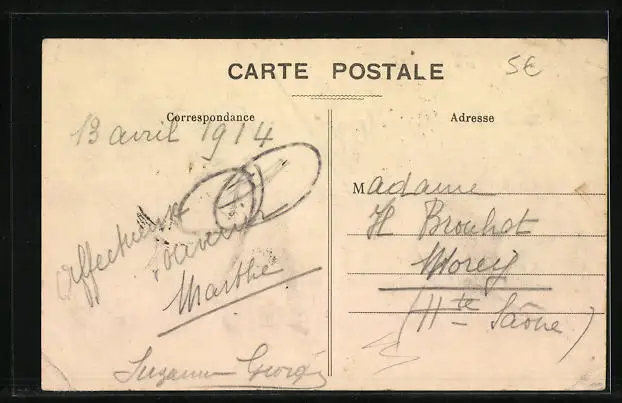 CARTE POSTALE
5€
Correspondance
13 avril 1914
Affectueux
souvenir
Marthe
Suzanne Georges
Adresse
Madame
H Brouhot
Morey
(Hte Saône)